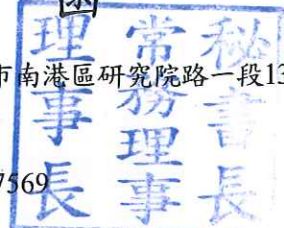 市南港區研究院路一段13
7569
秘書長
常務理事
理事長